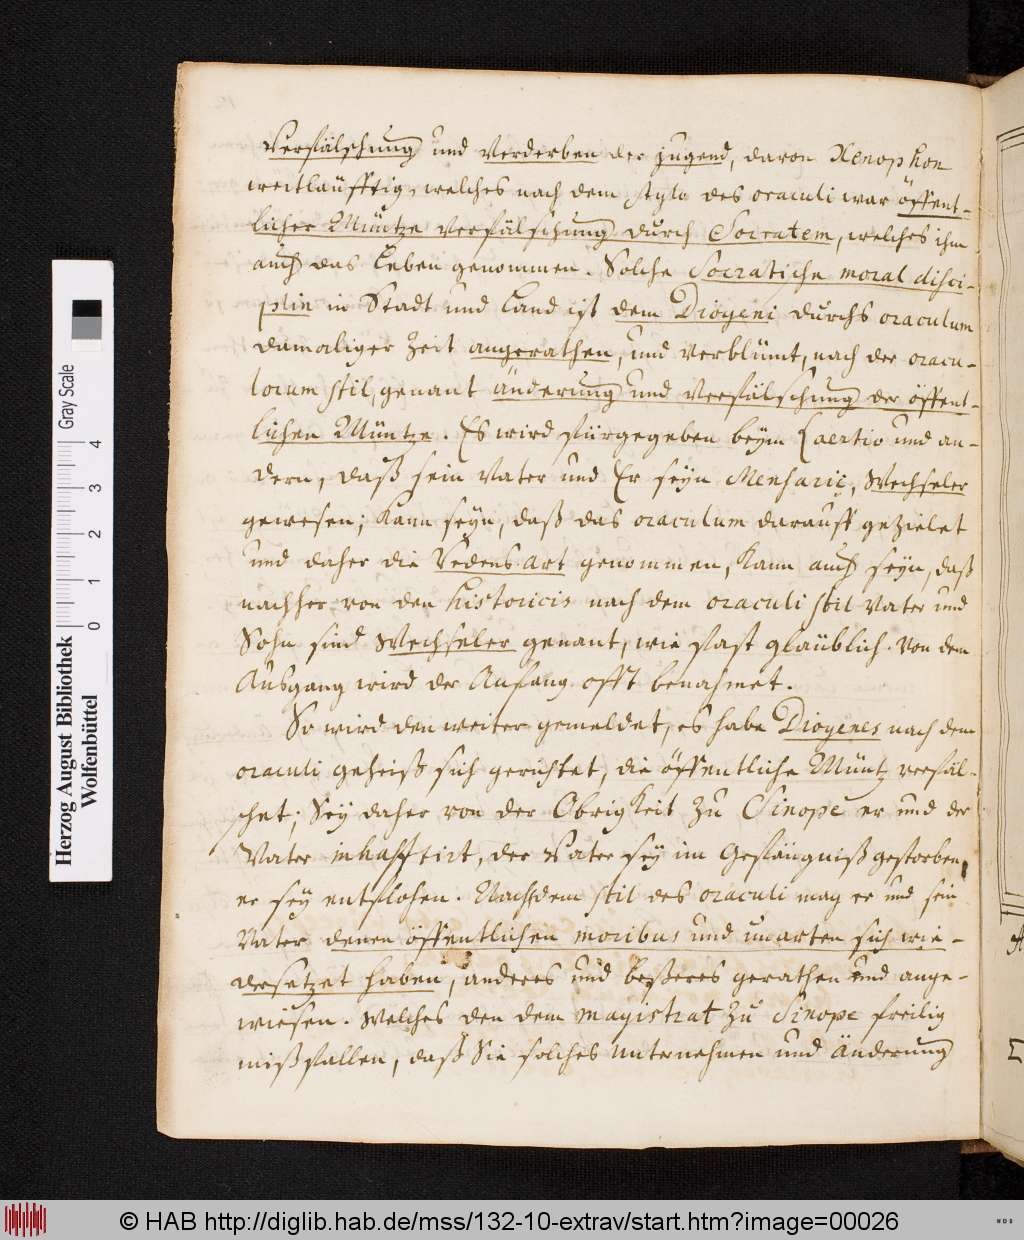 Verfälschung und Verderben der jugend, davon Xenophon
weitläufftig, welches nach dem stylo des oraculi war öffent-
licher Müntze verfälschung durch Socratem, welches ihm
auch das Leben genommen. Solche Socratische moral disci-
plin in Stadt und Land ist dem Diogeni durchs oraculum
damaliger Zeit angerathen, und verblümt, nach der oracu-
lorum stil, genant änderung und Verfälschung der öffent-
lichen Müntze. Es wird fürgegeben beÿm Laertio und an-
dern, daß sein Vater und Er seyn Mensarii, Wechseler
gewesen; Kann seyn, daß das oraculum darauff gezielet
und daher die Redens-art genommen, Kann auch seyn, daß
nachher von den historicis nach dem oraculi stil Vater und
Sohn sind Wechseler genant, wie fast gläublich. Von dem
Ausgang wird der Anfang offt benahmet.
So wird den weiter gemeldet, es habe Diogenes nach dem
oraculi geheiß sich gerichtet, die öffentliche Müntz verfäl-
schet; Seÿ daher von der Obrigkeit zu Sinope er und der
Vater inhafftirt, der Vater seÿ im Gefängniß gestorben,
er seÿ entflohen. Nach dem stil des oraculi mag er und sein
Vater denen öffentlichen moribus und unarten sich wie-
dersetzet haben, anderes und beßeres gerathen und ange-
wiesen. Welches den dem magistrat zu Sinope freilig
mißfallen, daß Sie solches Unternehmen und Änderung
Herzog August Bibliothek
Wolfenbüttel
0 1 2 3 4
Gray Scale
© HAB http://diglib.hab.de/mss/132-10-extrav/start.htm?image=00026